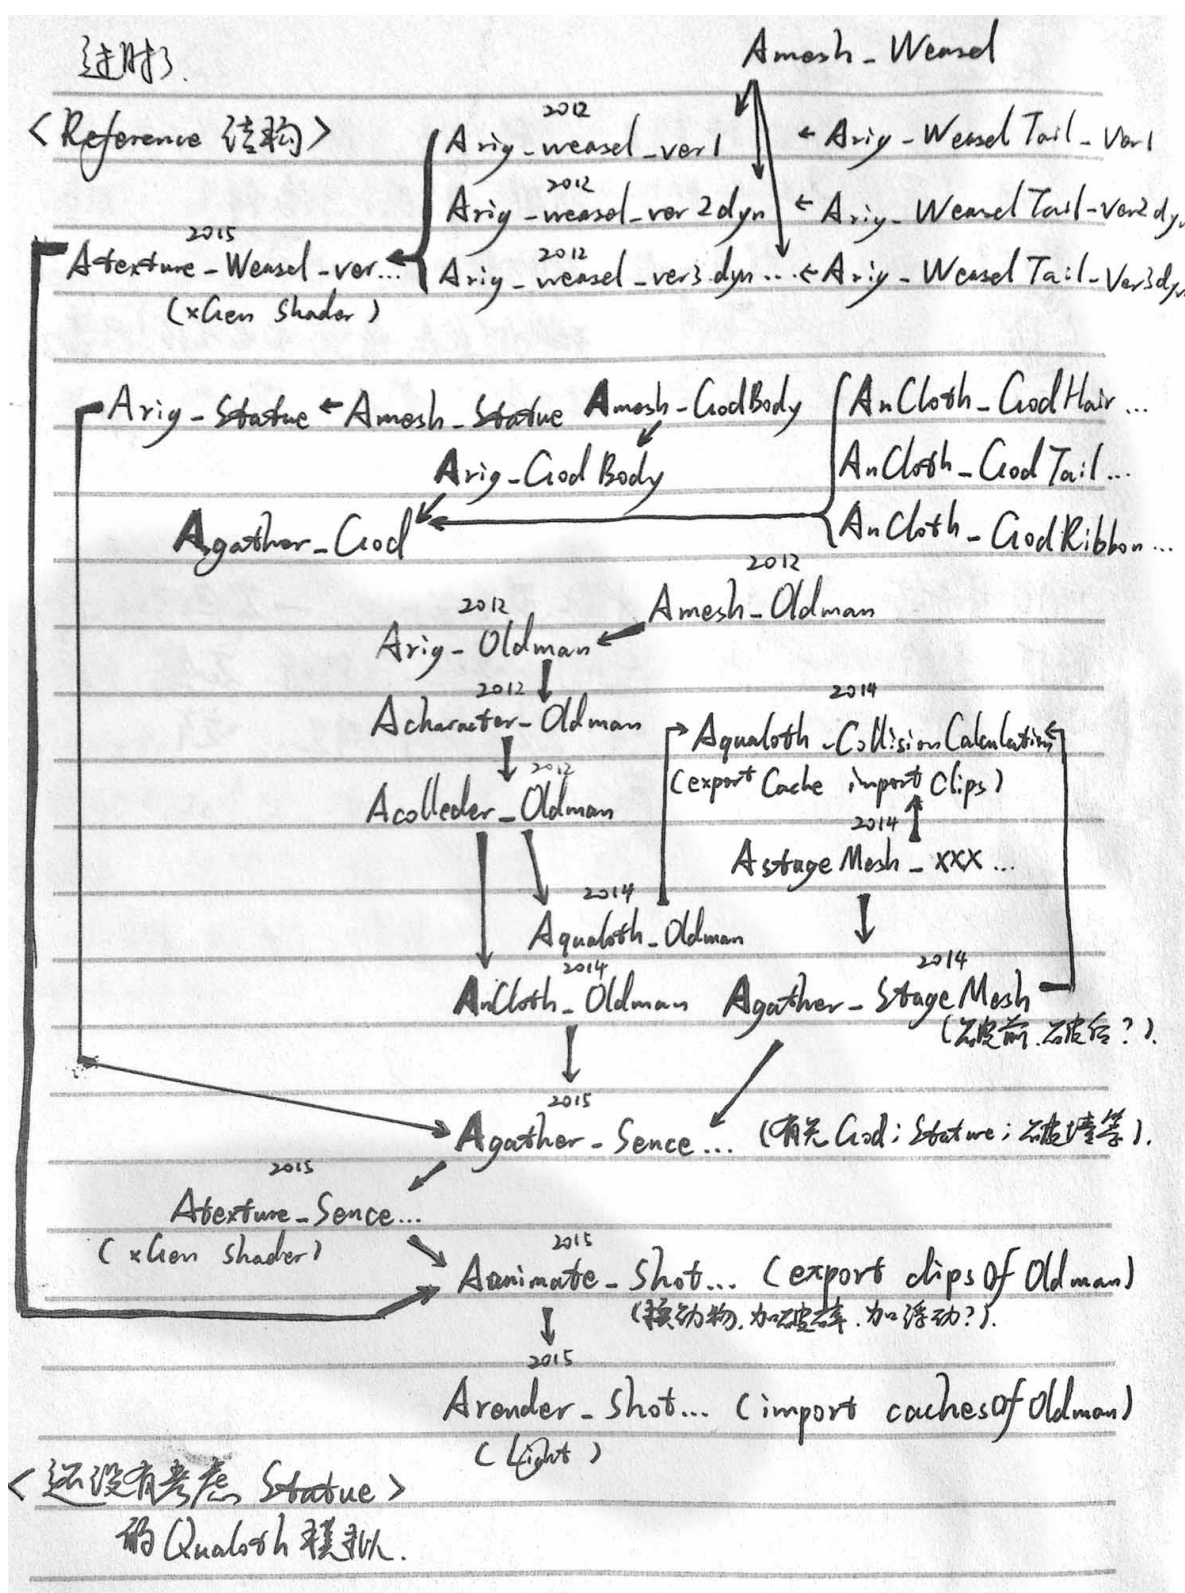 过时了.
Amesh_Weasel
<Reference 结构>
2012
Arig_weasel_ver1 ← Arig_WeaselTail_Ver1
2012
Arig_weasel_ver2dyn ← Arig_WeaselTail_Ver2dyn
2015
2012
Atexture_Weasel_ver... Arig_weasel_ver3dyn... ← Arig_WeaselTail_Ver3dyn
(xGen Shader)
Arig_Statue ← Amesh_Statue Amesh_GodBody AnCloth_GodHair...
Arig_GodBody AnCloth_GodTail...
Agather_God AnCloth_GodRibbon...
2012
2012
Amesh_Oldman
Arig_Oldman
2012
2014
Acharacter_Oldman Aqualoth_CollisionCalculation
2012
(export Cache import Clips)
Acolleder_Oldman
2014
AstageMesh_xxx...
2014
Aqualoth_Oldman
2014
2014
AnCloth_Oldman Agather_StageMesh
(破前.破后?).
2015
Agather_Sence... (有关God; Stature; 破墙等).
2015
Atexture_Sence...
(xGen shader)
2015
Aanimate_Shot... (export clips of Oldman)
(换动物.加破碎.加浮动?).
2015
Arender_Shot... (import caches of Oldman)
(Light)
<还没有考虑 Statue>
的Qualoth模拟.